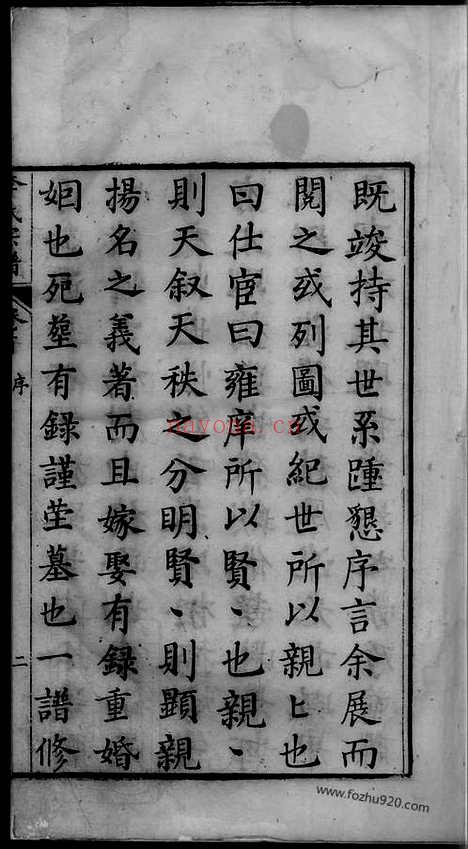 既竣持其世系踵懇序言余展而
閱之或列圖或紀世所以親〻也
曰仕宦曰雍庠所以賢〻也親〻
則天叙天秩之分明賢〻則顯親
揚名之義著而且嫁娶有録重婚
姻也死塟有録謹塋墓也一譜修
氏宗譜
序
二
nayona.cn
www.fozhu920.com